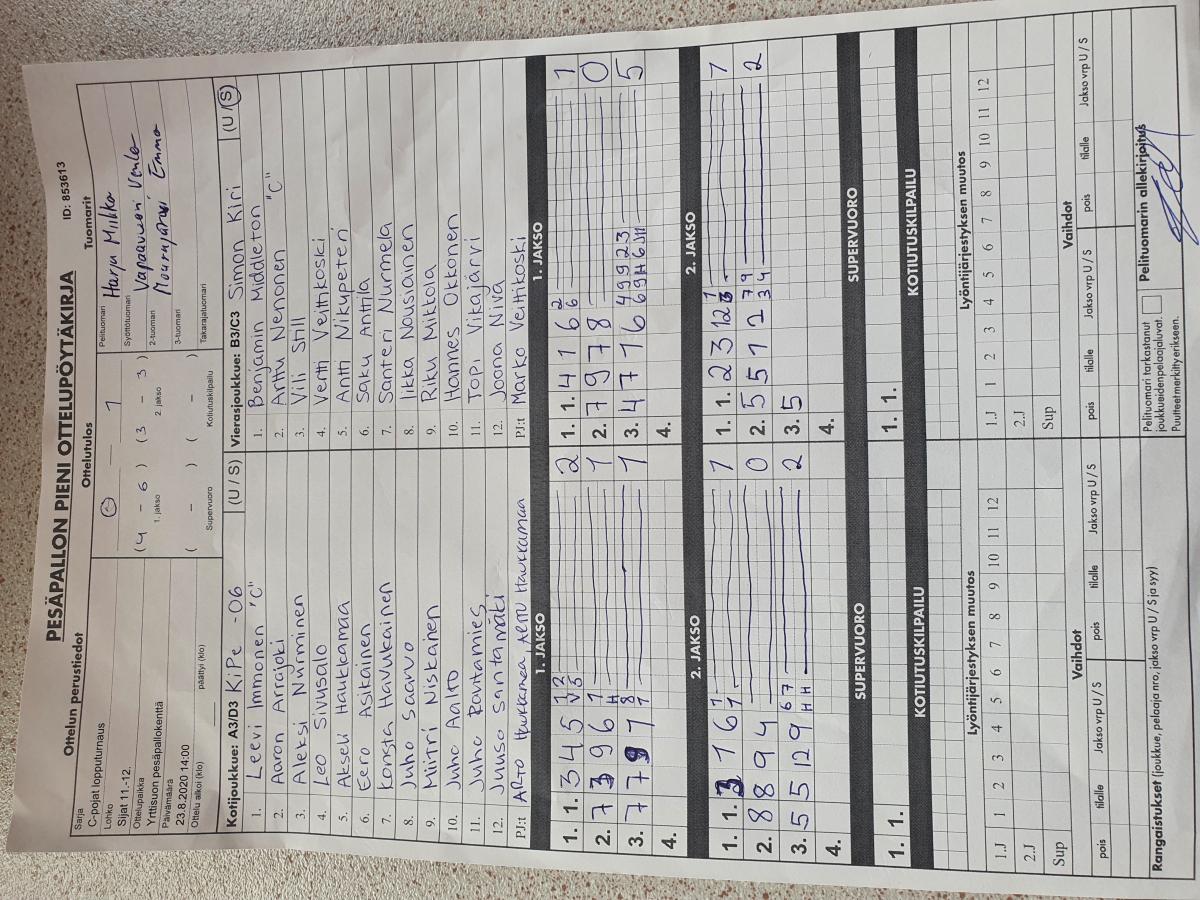 PESÄPALLON PIENI OTTELUPÖYTÄKIRJA
ID: 853613
Ottelun perustiedot
Sarja
C-pojat lopputurnaus
Lohko
Sijat 11.-12.
Ottelupaikka
Yrttisuon pesäpallokenttä
Päivämäärä
23.8.2020 14:00
Ottelu alkoi (klo)
päättyi (klo)
Ottelutulos
0 — 1
(4 - 6) (3 - 3)
1. jakso 2. jakso
( - ) ( - )
Supervuoro Kotiutuskilpailu
Tuomarit
Pelituomari Harju Miikka
Syöttötuomari Vapaavuori Venla
2-tuomari Mourujärvi Emma
3-tuomari
Takarajatuomari
Kotijoukkue: A3/D3 KiPe -06 (U / S)
1. Leevi Immonen "C"
2. Aaron Arrajoki
3. Aleksi Nurminen
4. Leo Sivusalo
5. Akseli Haukkamaa
6. Eero Asikainen
7. Konsta Havukainen
8. Juho Saarvo
9. Miitri Niskanen
10. Juho Aalto
11. Juho Rautamies
12. Juuso Santamäki
PJ:t ARTO Haukkamaa, ARTTU Haukkamaa
Vierasjoukkue: B3/C3 Simon Kiri (U / S)
1. Benjamin Middleton
2. Arttu Nenonen "C"
3. Vili Still
4. Vertti Veittikoski
5. Antti Nikupeteri
6. Saku Anttila
7. Santeri Nurmela
8. Iikka Nousiainen
9. Riku Mikkola
10. Hannes Okkonen
11. Topi Vikajärvi
12. Joona Niva
PJ:t Marko Veittikoski
1. JAKSO
1. 1. 3 4 5 2
2. 7 3 9 6 1
3. 7 7 1 1
4.
1. JAKSO
1. 1. 4 1 6 1
2. 7 9 7 8 0
3. 4 7 1 6 5
4.
2. JAKSO
1. 1. 3 1 6 1
2. 8 8 9 4 0
3. 5 5 12 9 2
4.
2. JAKSO
1. 1. 2 3 12 1
2. 5 5 1 2 2
3. 5
4.
SUPERVUORO
1. 1.
SUPERVUORO
1. 1.
KOTIUTUSKILPAILU
KOTIUTUSKILPAILU
Lyöntijärjestyksen muutos
1.J 1 2 3 4 5 6 7 8 9 10 11 12
2.J
Sup
Lyöntijärjestyksen muutos
1.J 1 2 3 4 5 6 7 8 9 10 11 12
2.J
Sup
Vaihdot
pois tilalle Jakso vrp U / S pois tilalle Jakso vrp U / S
Vaihdot
pois tilalle Jakso vrp U / S pois tilalle Jakso vrp U / S
Rangaistukset (joukkue, pelaaja nro, jakso vrp U / S ja syy)
Pelituomari tarkastanut
joukkueidenpelaajaluvat.
Puutteetmerkittyerikseen.
Pelituomarin allekirjoitus